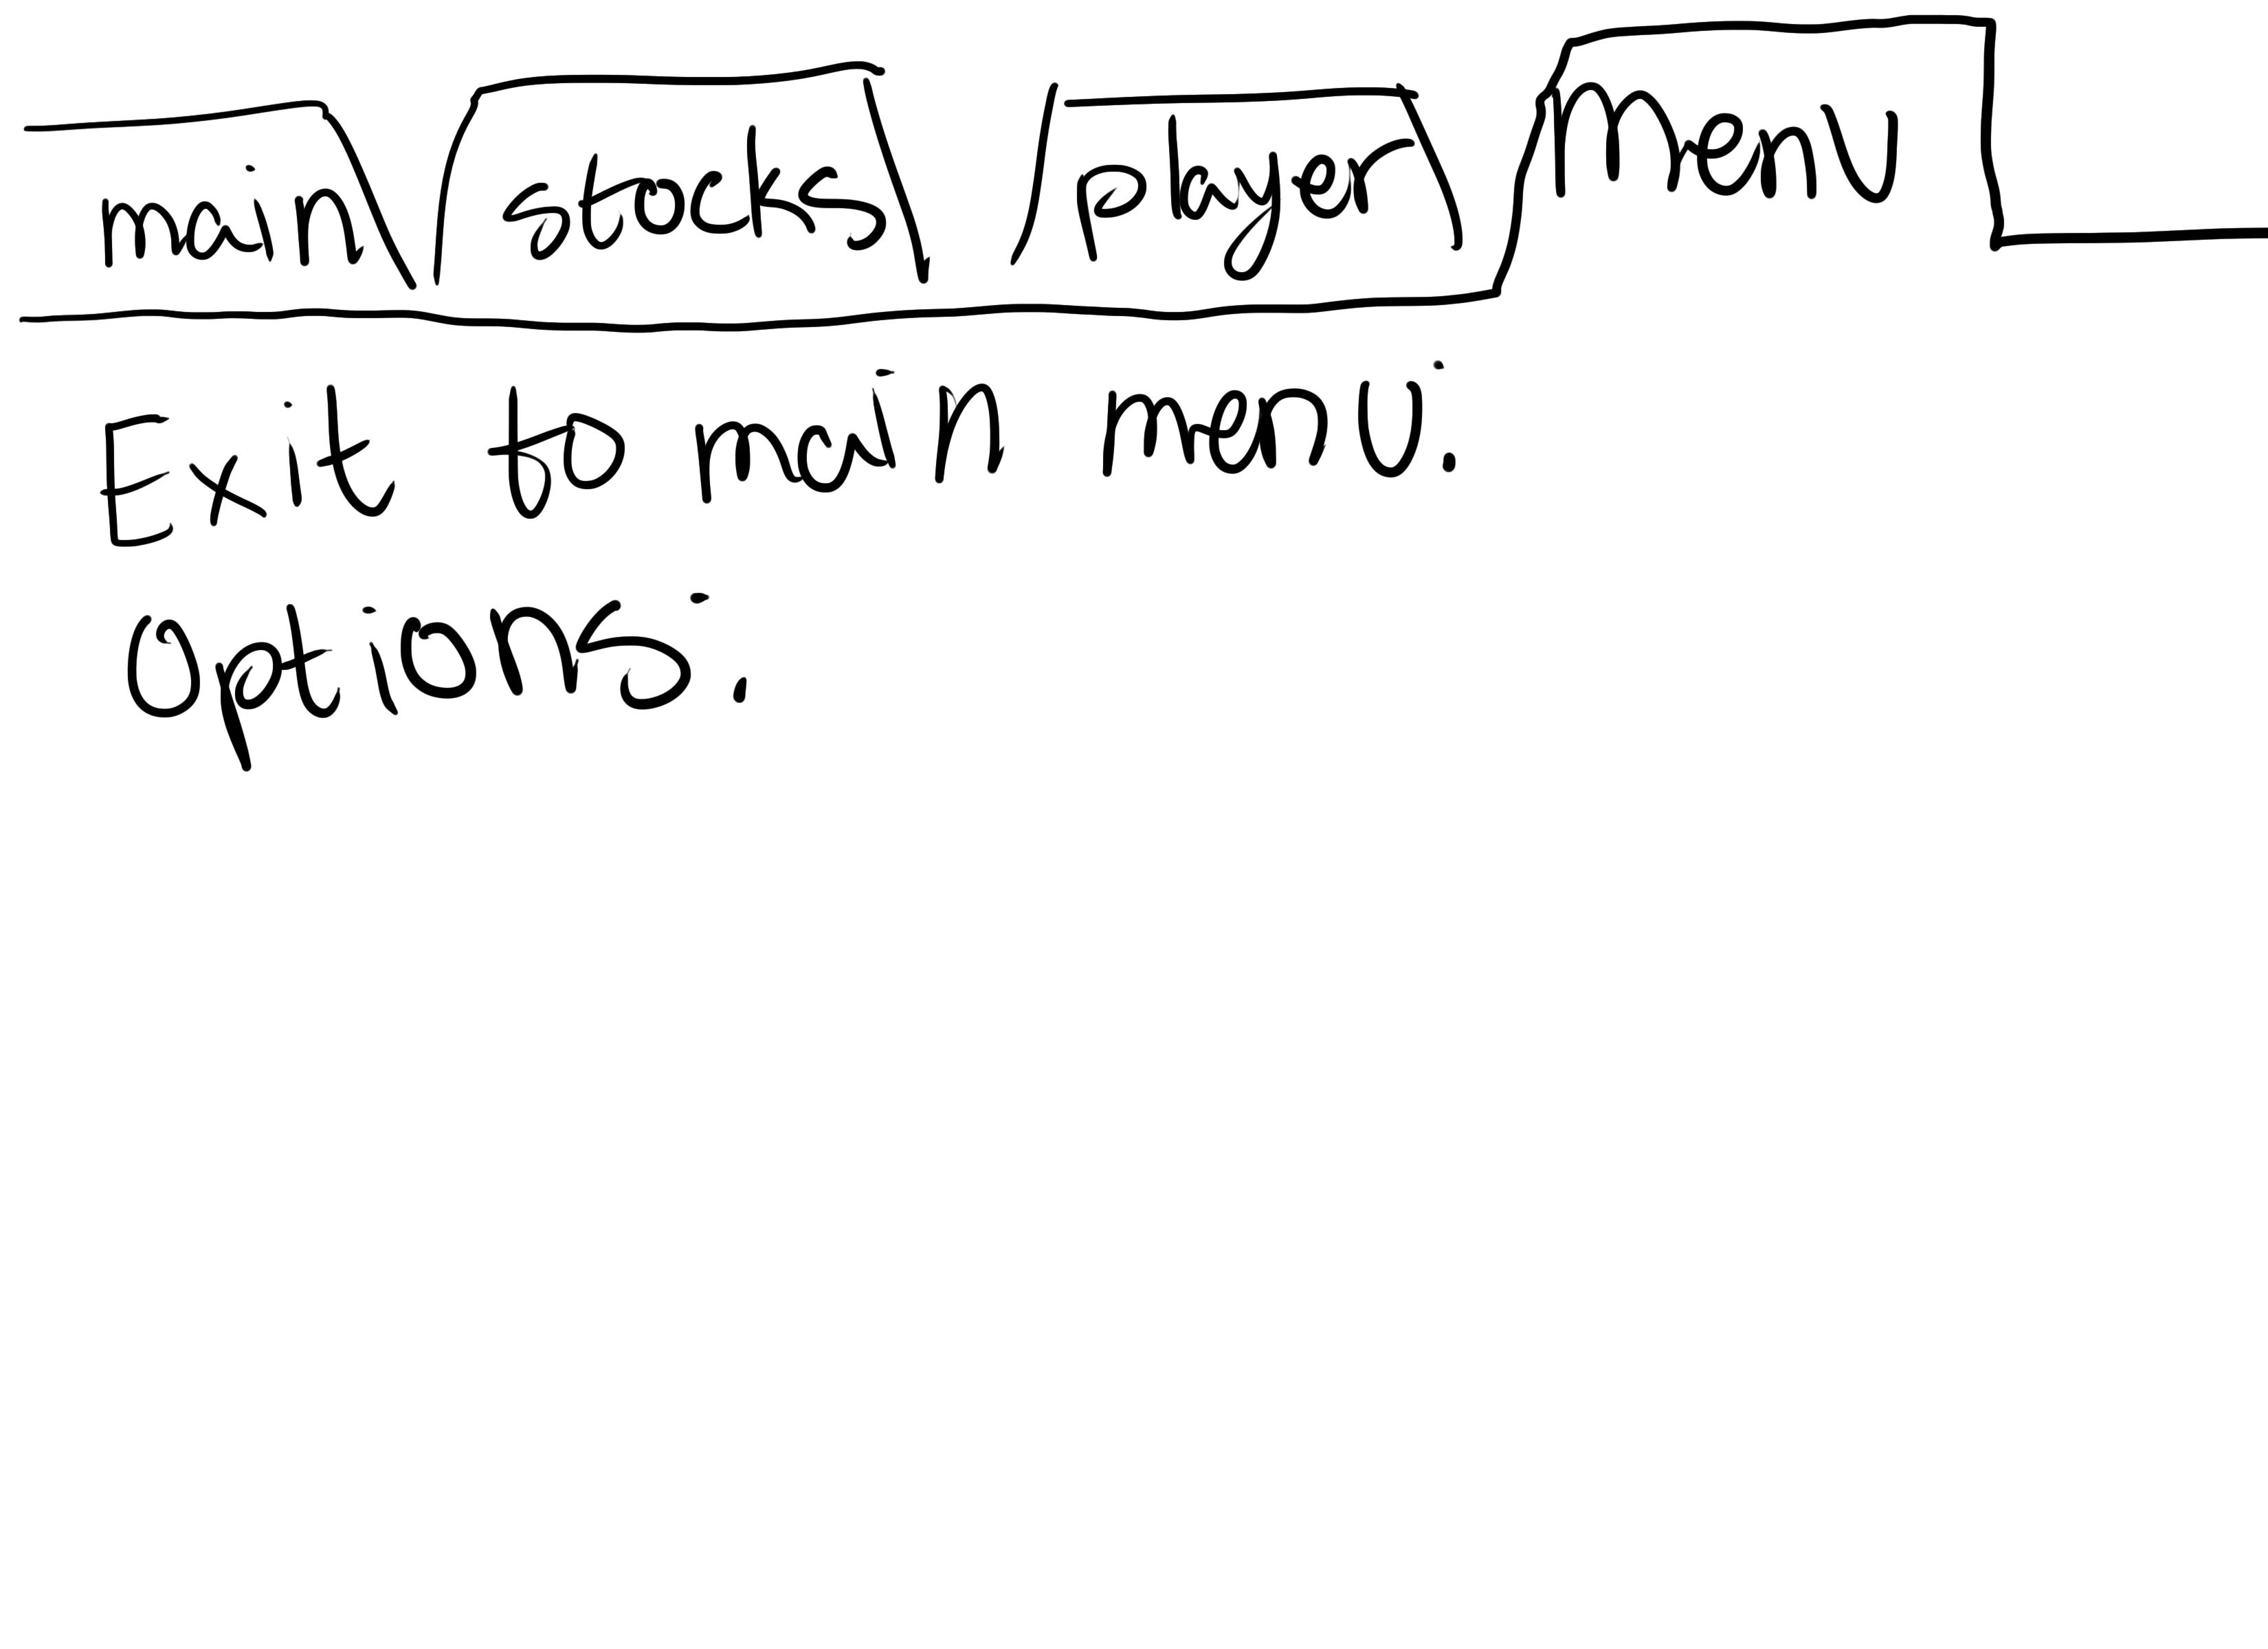 main stocks player Menu
Exit to main menu:
Options: